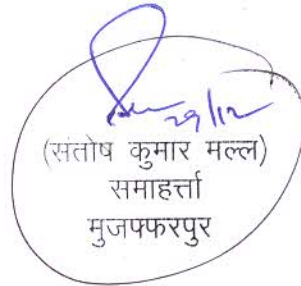 29/12
(संतोष कुमार मल्ल)
समाहर्त्ता
मुजफ्फरपुर